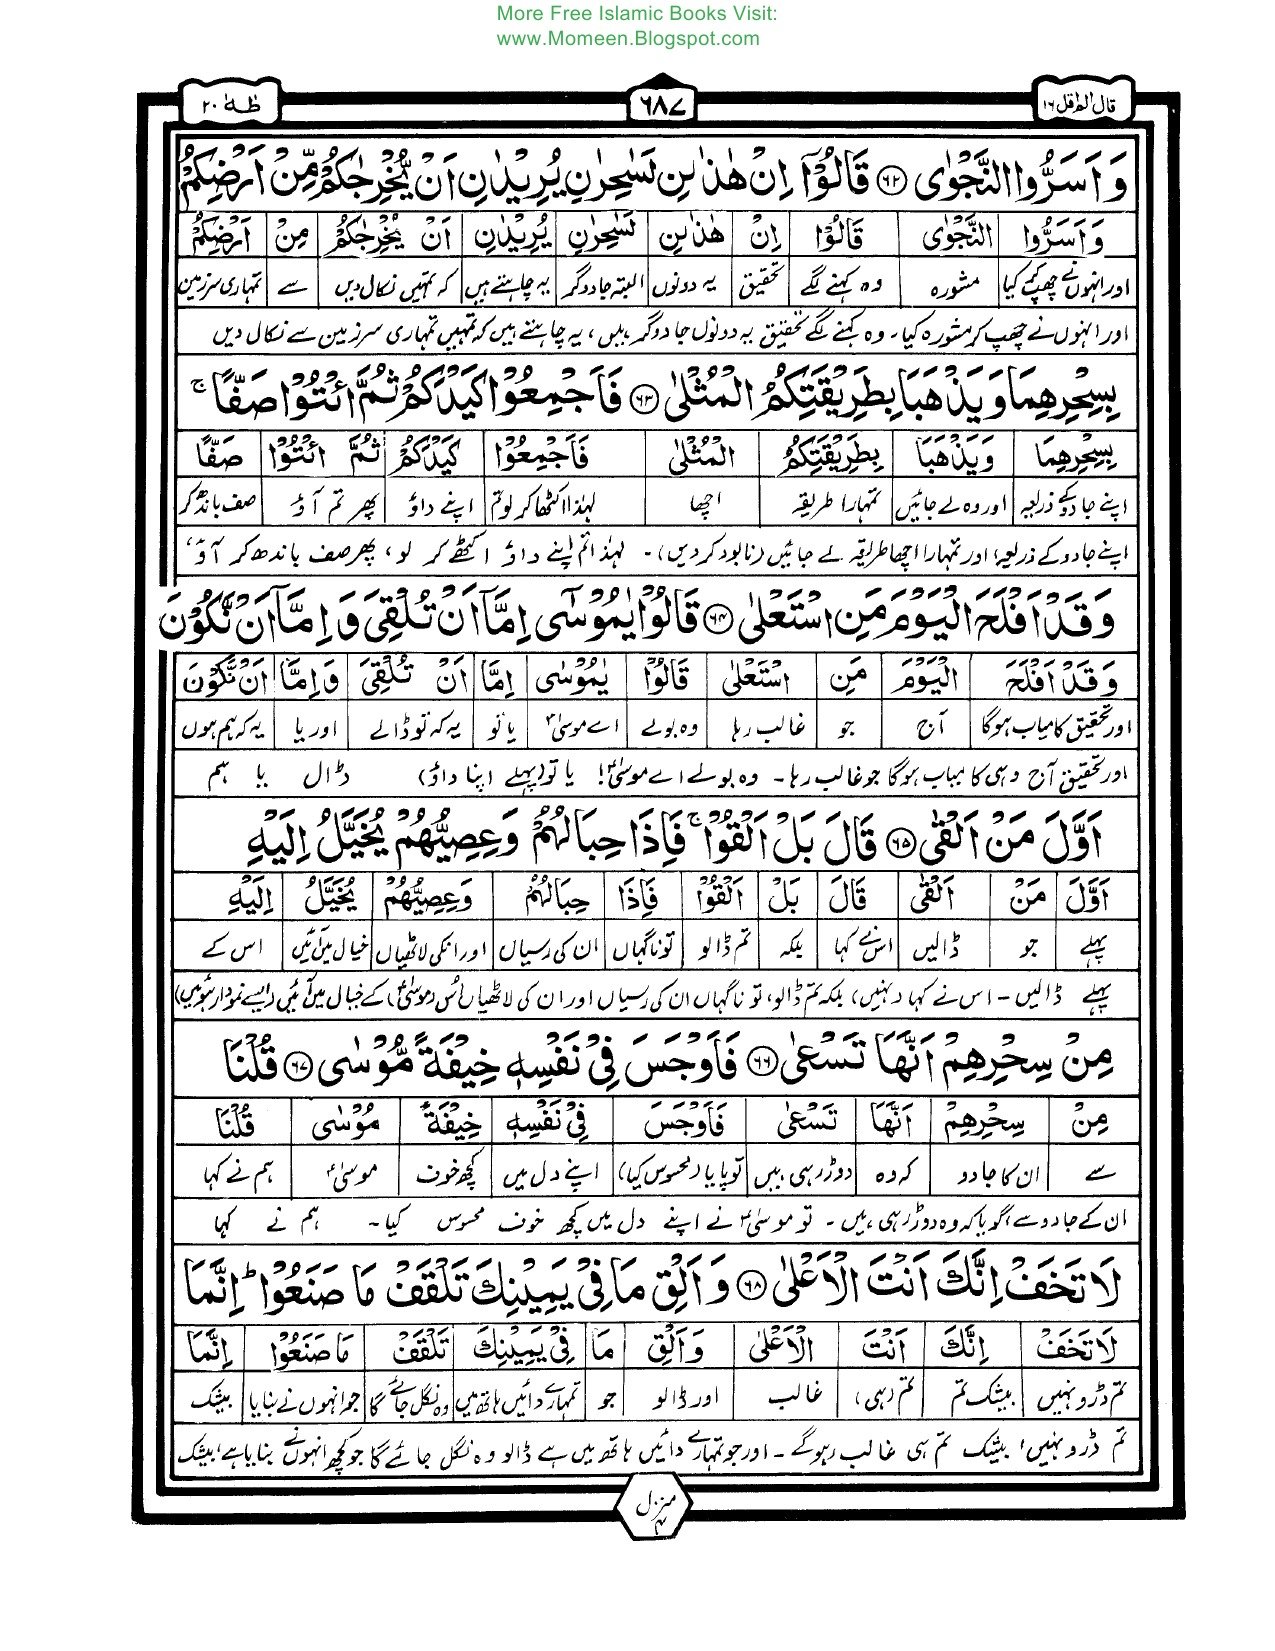 More Free Islamic Books Visit:
www.Momeen.Blogspot.com
قال الم اقل ١٦
٦٨٧
طٰهٰ ٢٠
وَاَسَرُّوا النَّجْوٰى ﴿٦٢﴾ قَالُوْٓا اِنْ هٰذٰىنِ لَسٰحِرٰنِ يُرِيْدٰنِ اَنْ يُّخْرِجٰكُمْ مِّنْ اَرْضِكُمْ
وَاَسَرُّوا النَّجْوٰى قَالُوْٓا اِنْ هٰذٰىنِ لَسٰحِرٰنِ يُرِيْدٰنِ اَنْ يُّخْرِجٰكُمْ مِنْ اَرْضِكُمْ
اور انہوں نے چھپ کے کیا مشورہ وہ کہنے لگے تحقیق یہ دونوں البتہ جادوگر یہ چاہتے ہیں کہ تمہیں نکال دیں سے تمہاری سرزمین
اور انہوں نے چھپ کر مشورہ کیا۔ وہ کہنے لگے تحقیق یہ دونوں جادوگر ہیں، یہ چاہتے ہیں کہ تمہیں تمہاری سرزمین سے نکال دیں
بِسِحْرِهِمَا وَيَذْهَبَا بِطَرِيْقَتِكُمُ الْمُثْلٰى ﴿٦٣﴾ فَاَجْمِعُوْا كَيْدَكُمْ ثُمَّ ائْتُوْا صَفًّا ۚ
بِسِحْرِهِمَا وَيَذْهَبَا بِطَرِيْقَتِكُمُ الْمُثْلٰى فَاَجْمِعُوْا كَيْدَكُمْ ثُمَّ ائْتُوْا صَفًّا
اپنے جادو کے ذریعہ اور وہ لے جائیں تمہارا طریقہ اچھا لہٰذا اکٹھا کر لو تم اپنے داؤ پھر تم آؤ صف باندھ کر
اپنے جادو کے ذریعہ، اور تمہارا اچھا طریقہ لے جائیں (نابود کر دیں)۔ لہٰذا تم اپنے داؤ اکٹھے کر لو، پھر صف باندھ کر آؤ،
وَقَدْ اَفْلَحَ الْيَوْمَ مَنِ اسْتَعْلٰى ﴿٦٤﴾ قَالُوْا يٰمُوْسٰٓى اِمَّآ اَنْ تُلْقِىَ وَاِمَّآ اَنْ نَّكُوْنَ
وَقَدْ اَفْلَحَ الْيَوْمَ مَنِ اسْتَعْلٰى قَالُوْا يٰمُوْسٰى اِمَّا اَنْ تُلْقِىَ وَاِمَّا اَنْ نَّكُوْنَ
اور تحقیق کامیاب ہوگا آج جو غالب رہا وہ بولے اے موسیٰؑ یا تو یہ کہ تو ڈالے اور یا یہ کہ ہم ہوں
اور تحقیق آج وہی کامیاب ہوگا جو غالب رہا۔ وہ بولے اے موسیٰؑ! یا تو (پہلے اپنا داؤ) ڈال یا ہم
اَوَّلَ مَنْ اَلْقٰى ﴿٦٥﴾ قَالَ بَلْ اَلْقُوْا ۚ فَاِذَا حِبَالُهُمْ وَعِصِيُّهُمْ يُخَيَّلُ اِلَيْهِ
اَوَّلَ مَنْ اَلْقٰى قَالَ بَلْ اَلْقُوْا فَاِذَا حِبَالُهُمْ وَعِصِيُّهُمْ يُخَيَّلُ اِلَيْهِ
پہلے جو ڈالیں اس نے کہا بلکہ تم ڈالو تو ناگہاں ان کی رسیاں اور انکی لاٹھیاں خیال میں آئیں اس کے
پہلے ڈالیں۔ اس نے کہا (نہیں) بلکہ تم ڈالو، تو ناگہاں ان کی رسیاں اور ان کی لاٹھیاں اُس (موسیٰؑ) کے خیال میں آئیں (ایسے نمودار ہوئیں)
مِنْ سِحْرِهِمْ اَنَّهَا تَسْعٰى ﴿٦٦﴾ فَاَوْجَسَ فِىْ نَفْسِهٖ خِيْفَةً مُّوْسٰى ﴿٦٧﴾ قُلْنَا
مِنْ سِحْرِهِمْ اَنَّهَا تَسْعٰى فَاَوْجَسَ فِىْ نَفْسِهٖ خِيْفَةً مُوْسٰى قُلْنَا
سے ان کا جادو کہ وہ دوڑ رہی ہیں تو پایا (محسوس کیا) اپنے دل میں کچھ خوف موسیٰؑ ہم نے کہا
ان کے جادو سے گویا کہ وہ دوڑ رہی ہیں۔ تو موسیٰؑ نے اپنے دل میں کچھ خوف محسوس کیا۔ ہم نے کہا
لَا تَخَفْ اِنَّكَ اَنْتَ الْاَعْلٰى ﴿٦٨﴾ وَاَلْقِ مَا فِىْ يَمِيْنِكَ تَلْقَفْ مَا صَنَعُوْا ؕ اِنَّمَا
لَا تَخَفْ اِنَّكَ اَنْتَ الْاَعْلٰى وَاَلْقِ مَا فِىْ يَمِيْنِكَ تَلْقَفْ مَا صَنَعُوْا اِنَّمَا
تم ڈرو نہیں بیشک تم تم (ہی) غالب اور ڈالو جو تمہارے دائیں ہاتھ میں وہ نگل جائے گا جو انہوں نے بنایا بیشک
تم ڈرو نہیں! بیشک تم ہی غالب رہوگے۔ اور جو تمہارے دائیں ہاتھ میں ہے ڈالو وہ نگل جائے گا جو کچھ انہوں نے بنایا ہے، بیشک
منزل ۴